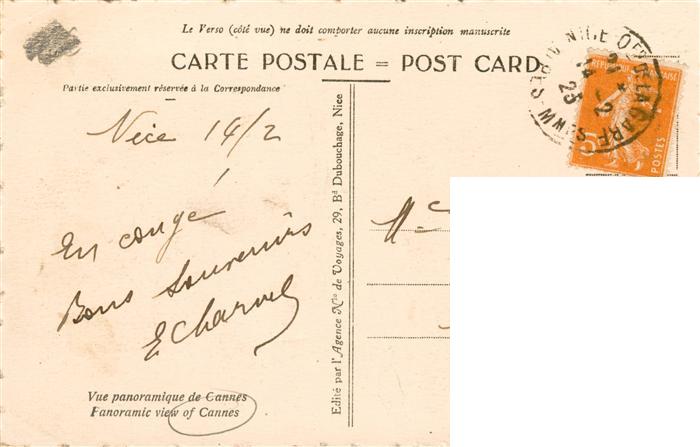 Le Verso (côté vue) ne doit comporter aucune inscription manuscrite
CARTE POSTALE = POST CARD
Partie exclusivement réservée à la Correspondance
Nice 14/2
En congé
Bons Souvenirs
ECharvet
Vue panoramique de Cannes
Panoramic view of Cannes
Edité par l'Agence Nle de Voyages, 29, Bd Dubouchage, Nice
NICE
DE LA GARE
25
REPUBLIQUE FRANÇAISE
5
POSTES